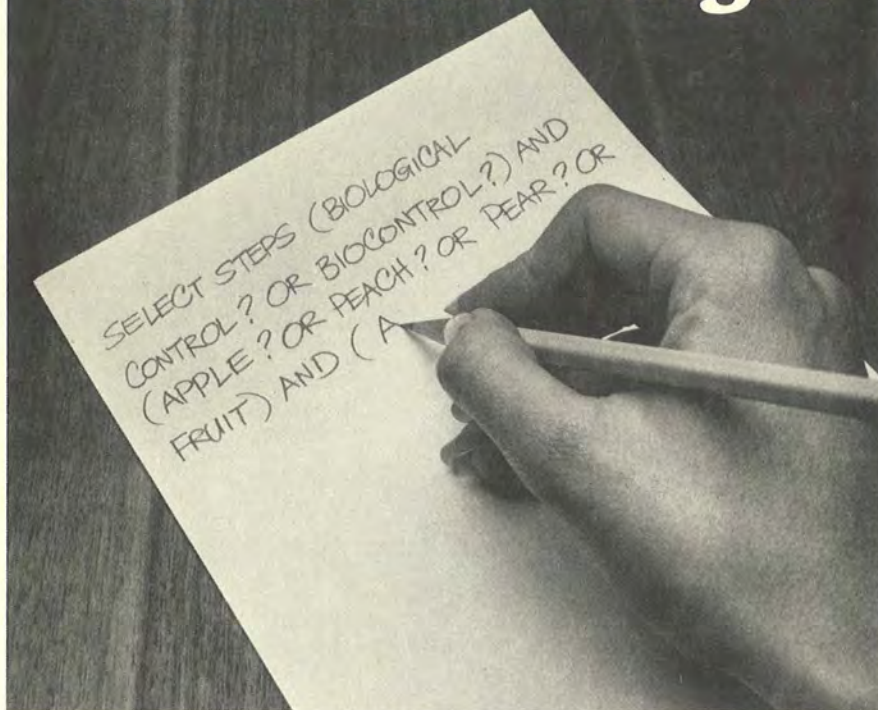 SELECT STEPS (BIOLOGICAL
CONTROL? OR BIOCONTROL?) AND
(APPLE? OR PEACH? OR PEAR? OR
FRUIT) AND (A